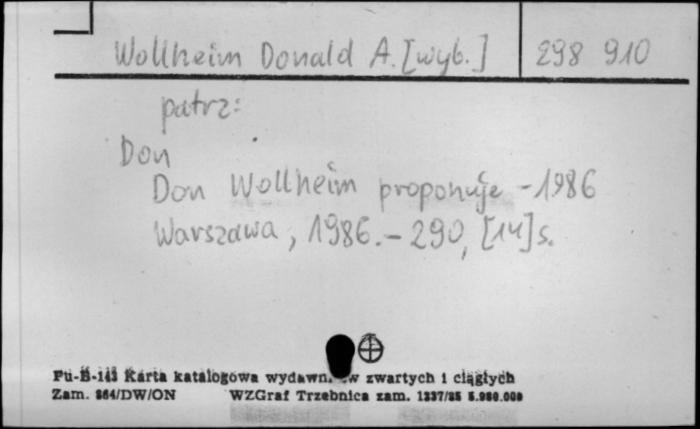 Wollheim Donald A. [wyb.] 298 910
patrz:
Don
Don Wollheim proponuje - 1986
Warszawa, 1986. - 290, [14] s.
Pu-B-143 Karta katalogowa wydawn. zwartych i ciągłych
Zam. 864/DW/ON WZGraf Trzebnica zam. 1337/85 5.980.000